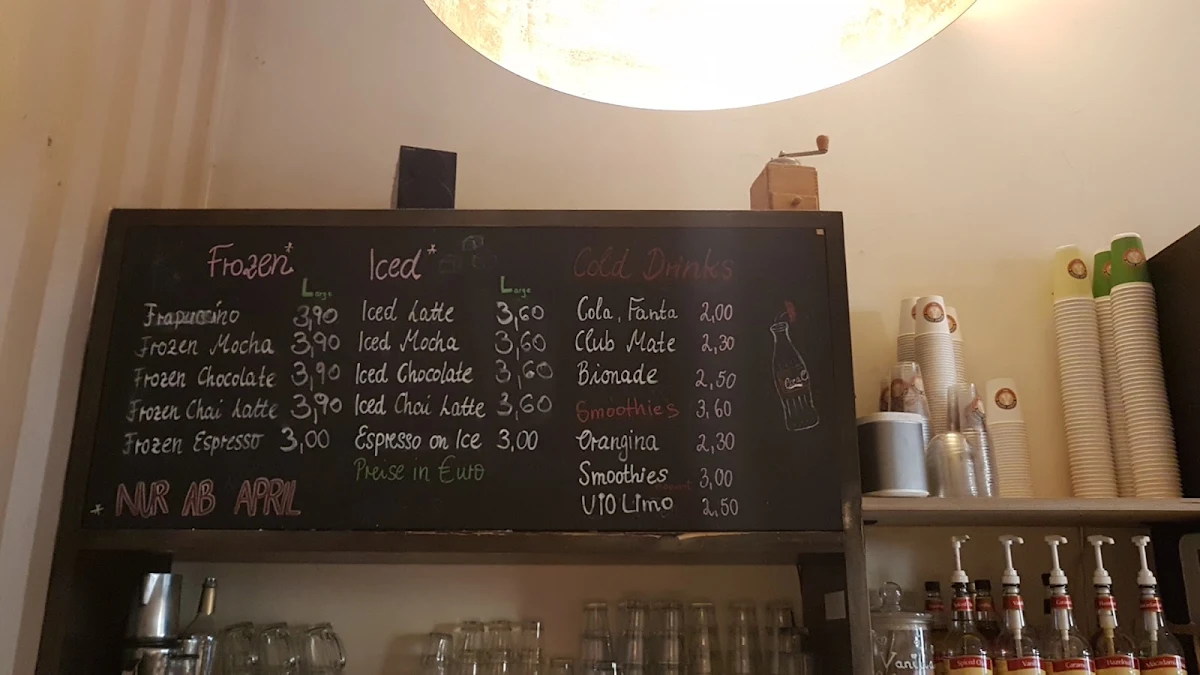 Frozen*
Large
Frapuccino 3,90
Frozen Mocha 3,90
Frozen Chocolate 3,90
Frozen Chai Latte 3,90
Frozen Espresso 3,00
* NUR AB APRIL
Iced*
Large
Iced Latte 3,60
Iced Mocha 3,60
Iced Chocolate 3,60
Iced Chai Latte 3,60
Espresso on Ice 3,00
Preise in Euro
Cold Drinks
Cola, Fanta 2,00
Club Mate 2,30
Bionade 2,50
Smoothies 3,60
Orangina 2,30
Smoothies 3,00
ViO Limo 2,50
Vanilla
Caramel
Hazelnut
Macadamia